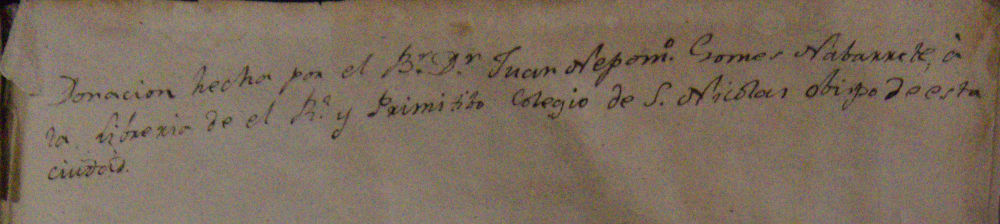 Donacion hecha por el B.r D.r Juan Nepom.o Gomes Nabarrete, à
la Libreria de el R.l y Primitibo Colegio de S. Nicolas obispo de esta
ciudad.